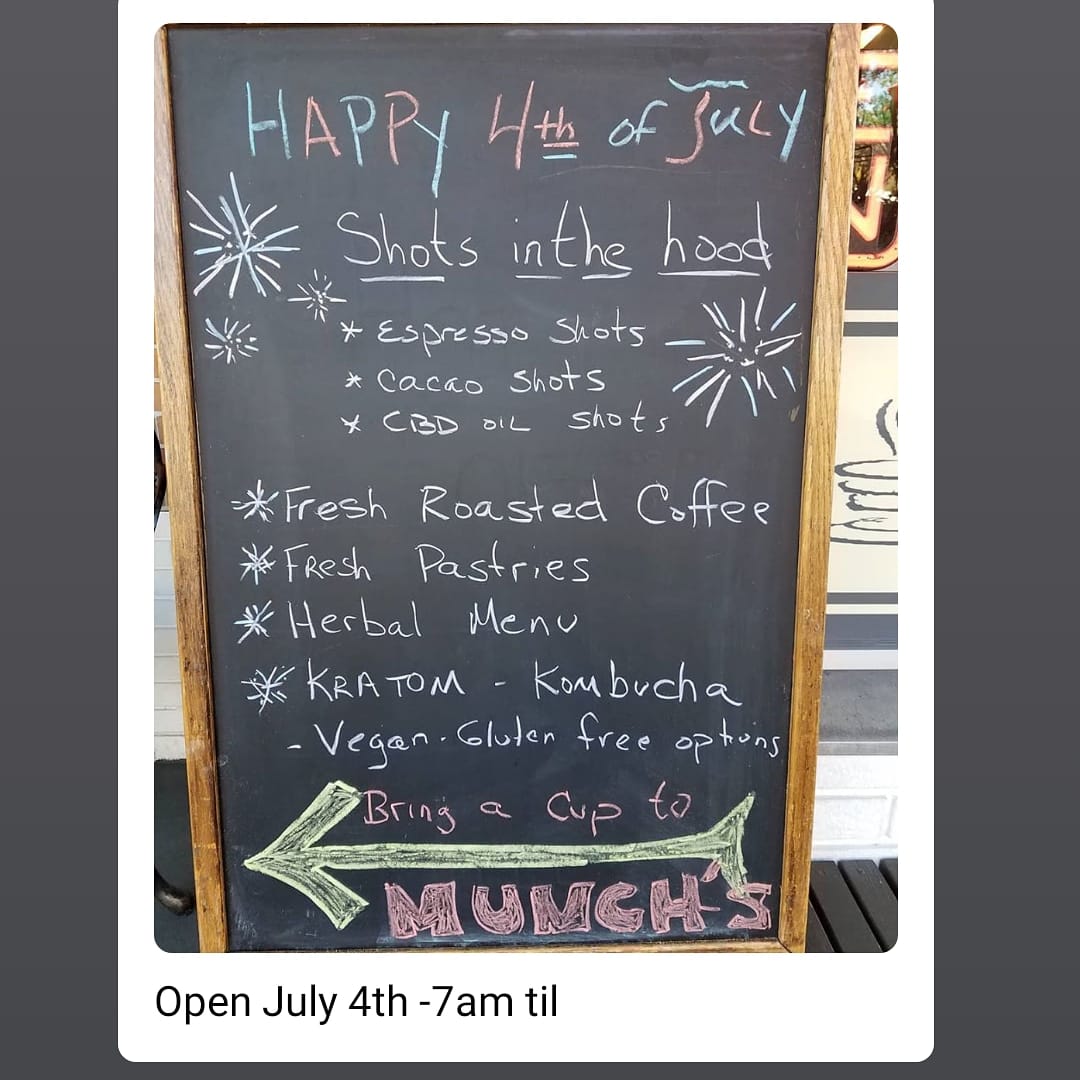 HAPPY 4th of JULY
Shots in the hood
* Espresso Shots
* Cacao Shots
* CBD OIL Shots
* Fresh Roasted Coffee
* FResh Pastries
* Herbal Menu
* KRATOM - Kombucha
- Vegan - Gluten free options
Bring a Cup to
MUNCH'S
Open July 4th -7am til